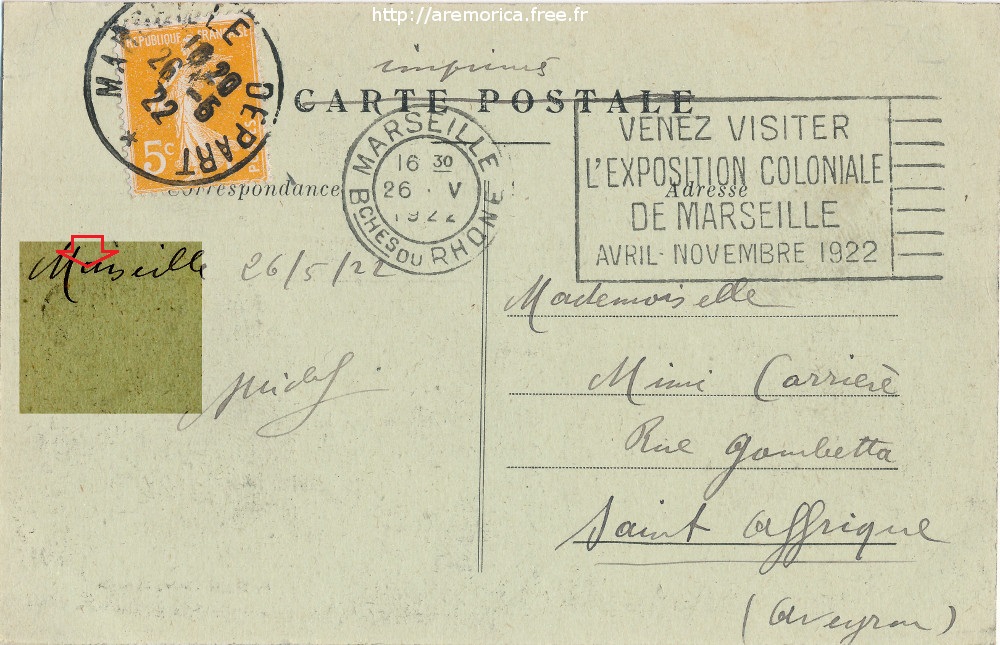 http://aremorica.free.fr
MARSEILLE DEPART
26 -5
22
REPUBLIQUE FRANÇAISE
5c
imprimés
CARTE POSTALE
MARSEILLE
16 30
26 · V
1922
Bches DU RHÔNE
VENEZ VISITER
L'EXPOSITION COLONIALE
DE MARSEILLE
AVRIL-NOVEMBRE 1922
Correspondance
Adresse
Marseille 26/5/22
Mademoiselle
Mimi Carrière
Rue Gambetta
Saint Affrique
(Aveyron)